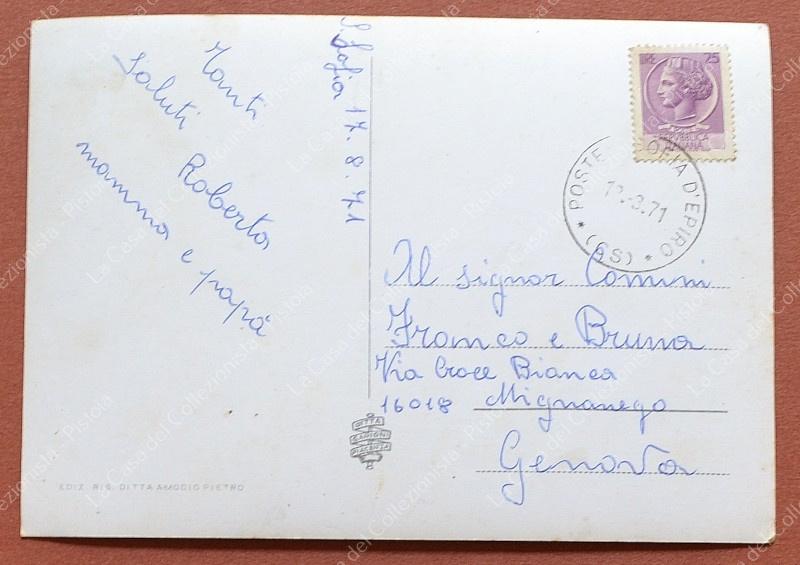 Tanti
saluti
Roberta
mamma e papà
S. Sofia 17.8.71
LIRE 25
REPUBBLICA
ITALIANA
POSTE SOFIA D'EPIRO
(CS)
Al signor Comini
Franco e Bruna
Via Croce Bianca
16018 Mignanego
Genova
DITTA
CAPIONI
PIACENZA
EDIZ. RIS. DITTA AMODIO PIETRO
La Casa del Collezionista - Pistoia